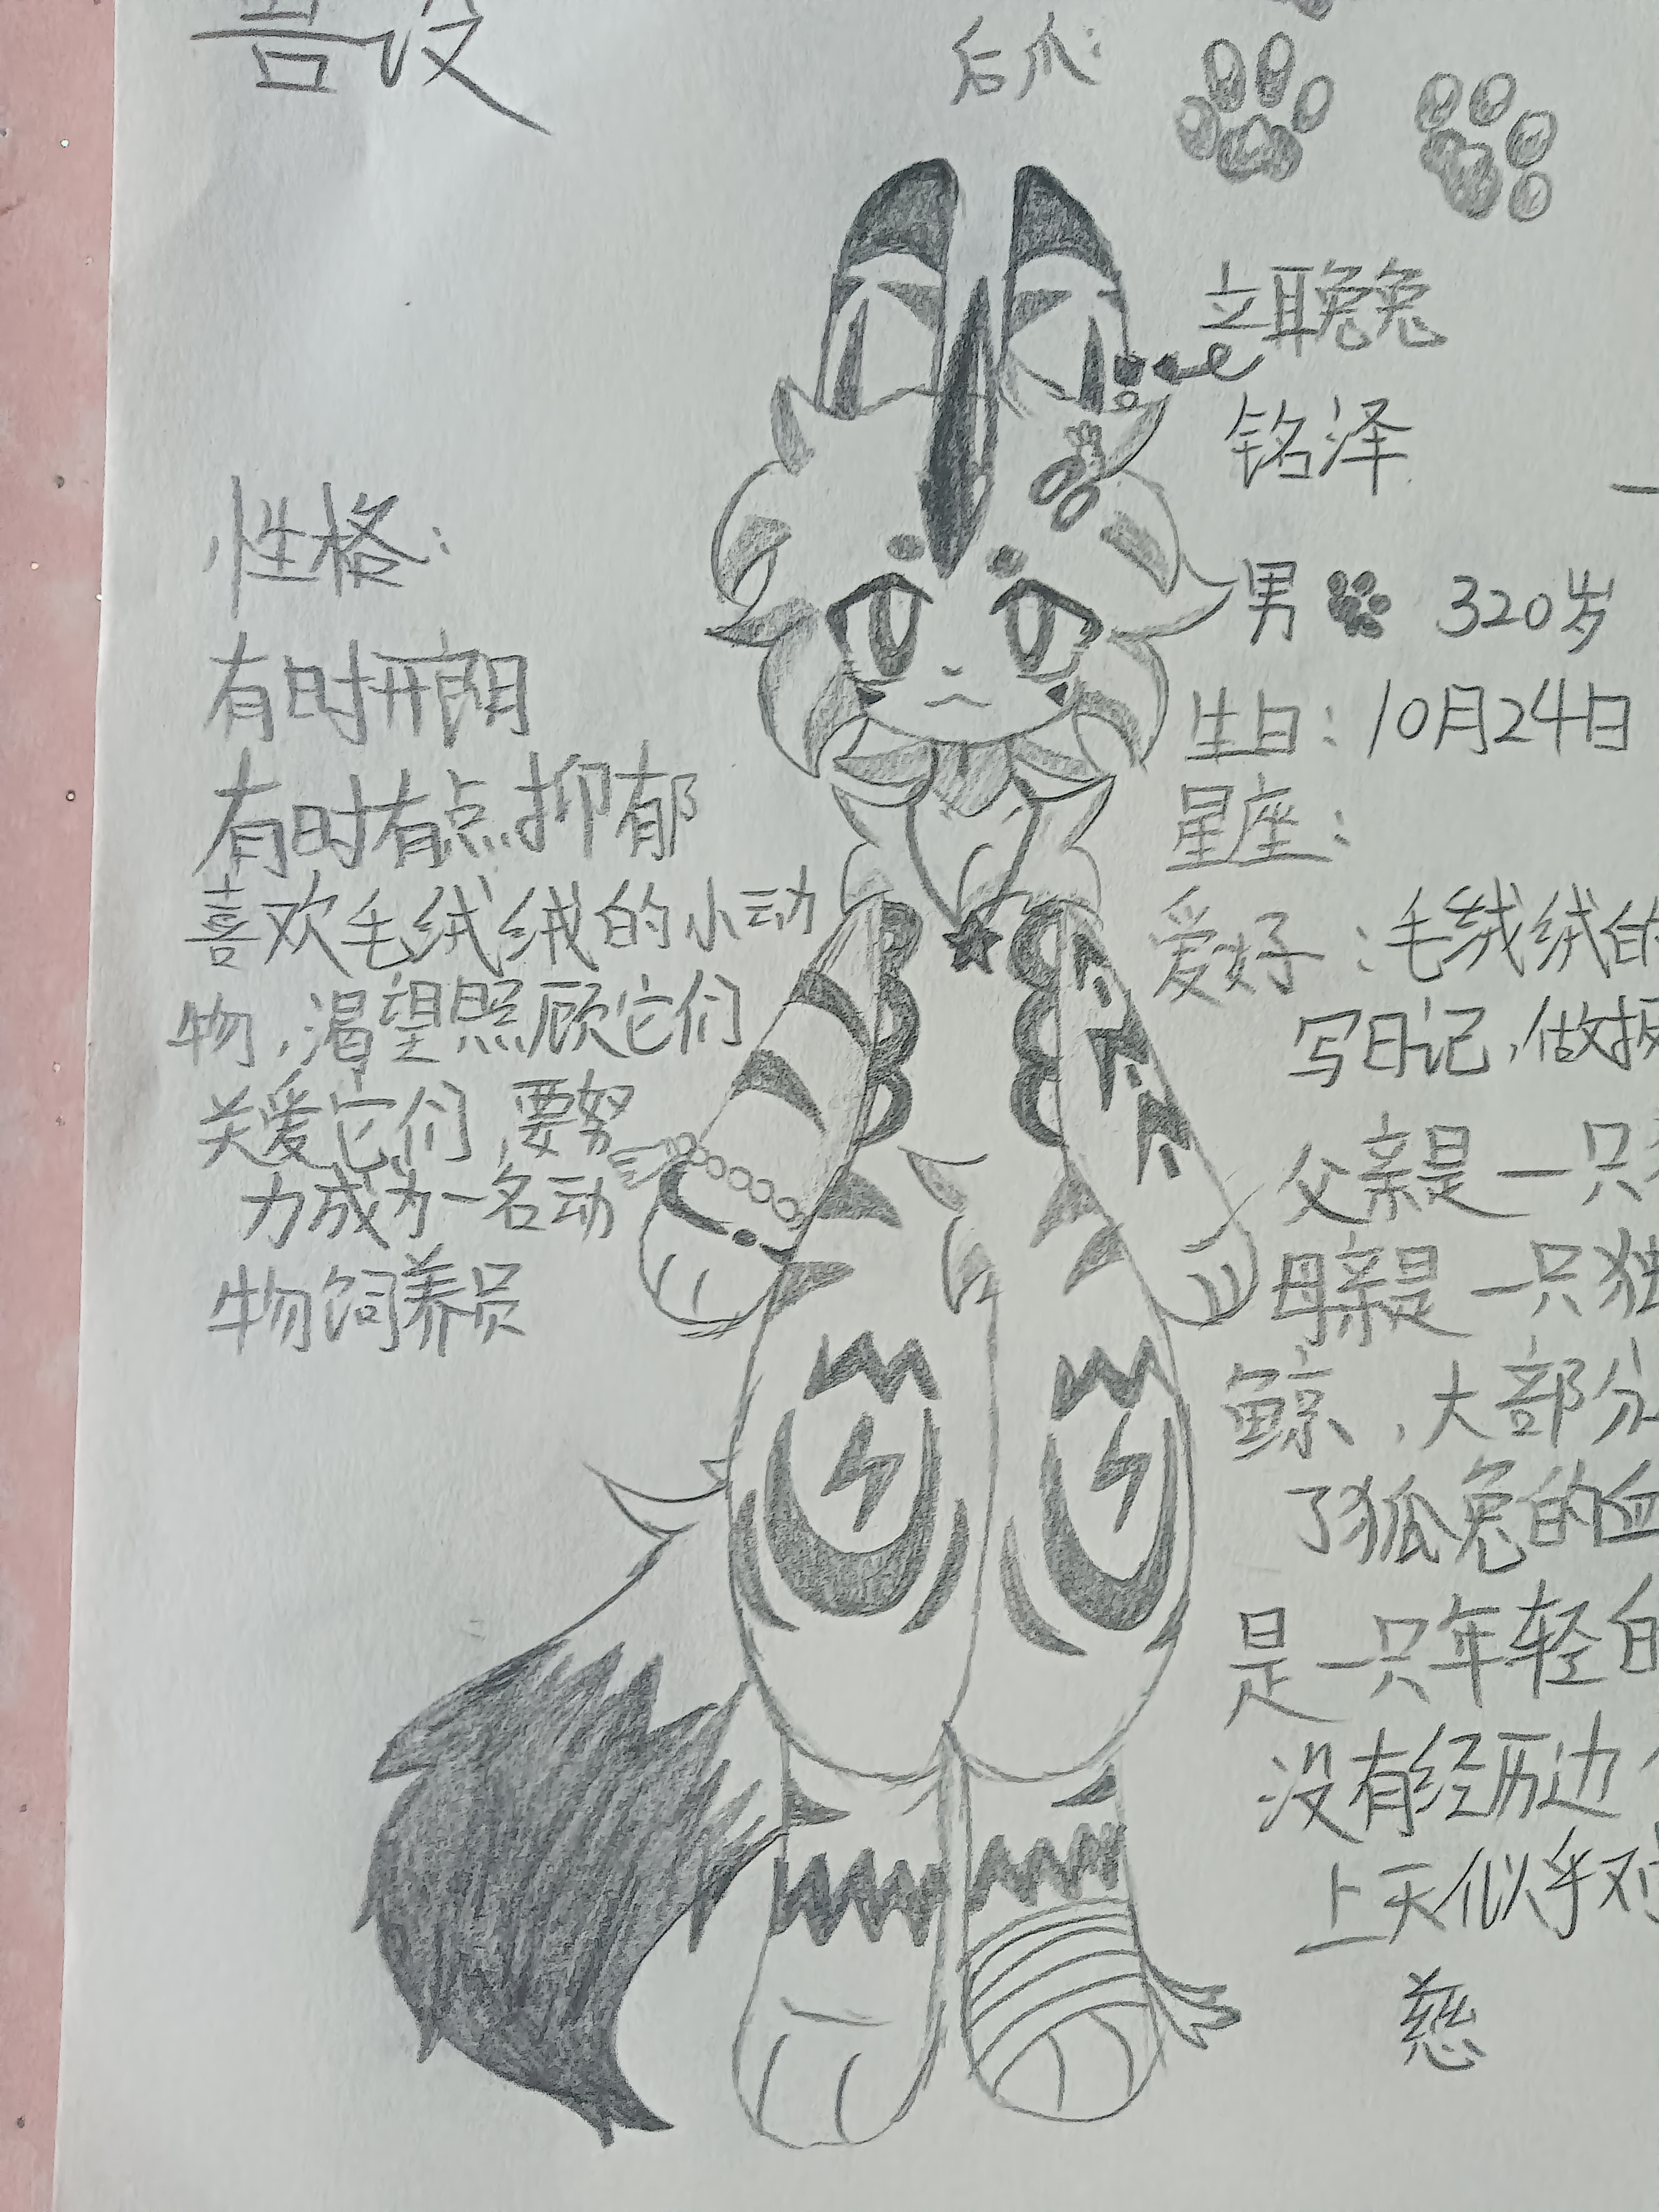 兽设
后爪：
立耳兔兔
铭泽
男 320岁
生日：10月24日
星座：
爱好：毛绒绒的
写日记，做披
父亲是一只
母亲是一只独
鲸，大部分
了狐兔的血
是一只年轻白
没有经历边
上天似乎对
慈
性格：
有时开朗
有时有点抑郁
喜欢毛绒绒的小动
物，渴望照顾它们
关爱它们，要努
力成为一名动
物饲养员